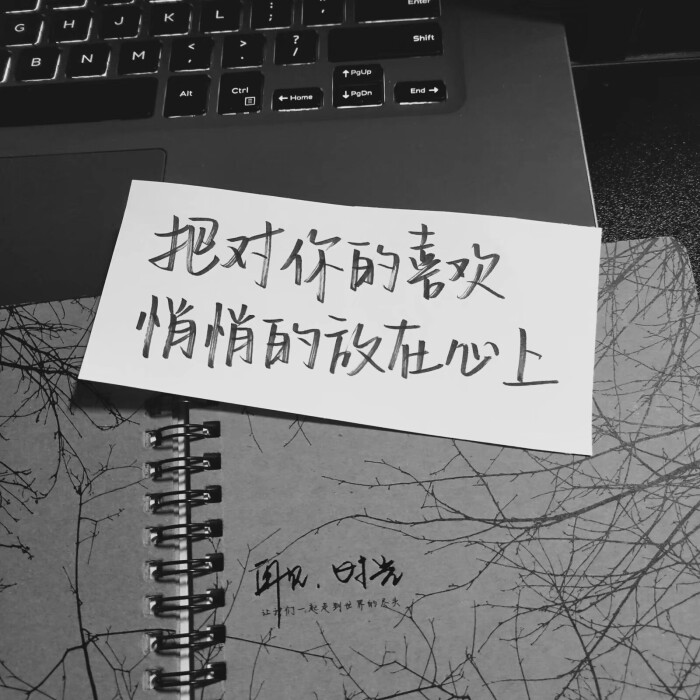 Enter
G H J K L : ;
Shift
B N M < , > . ? /
Alt Ctrl ← Home ↑ PgUp ↓ PgDn End →
把对你的喜欢
悄悄的放在心上
再见.时光
让我们一起走到世界的尽头